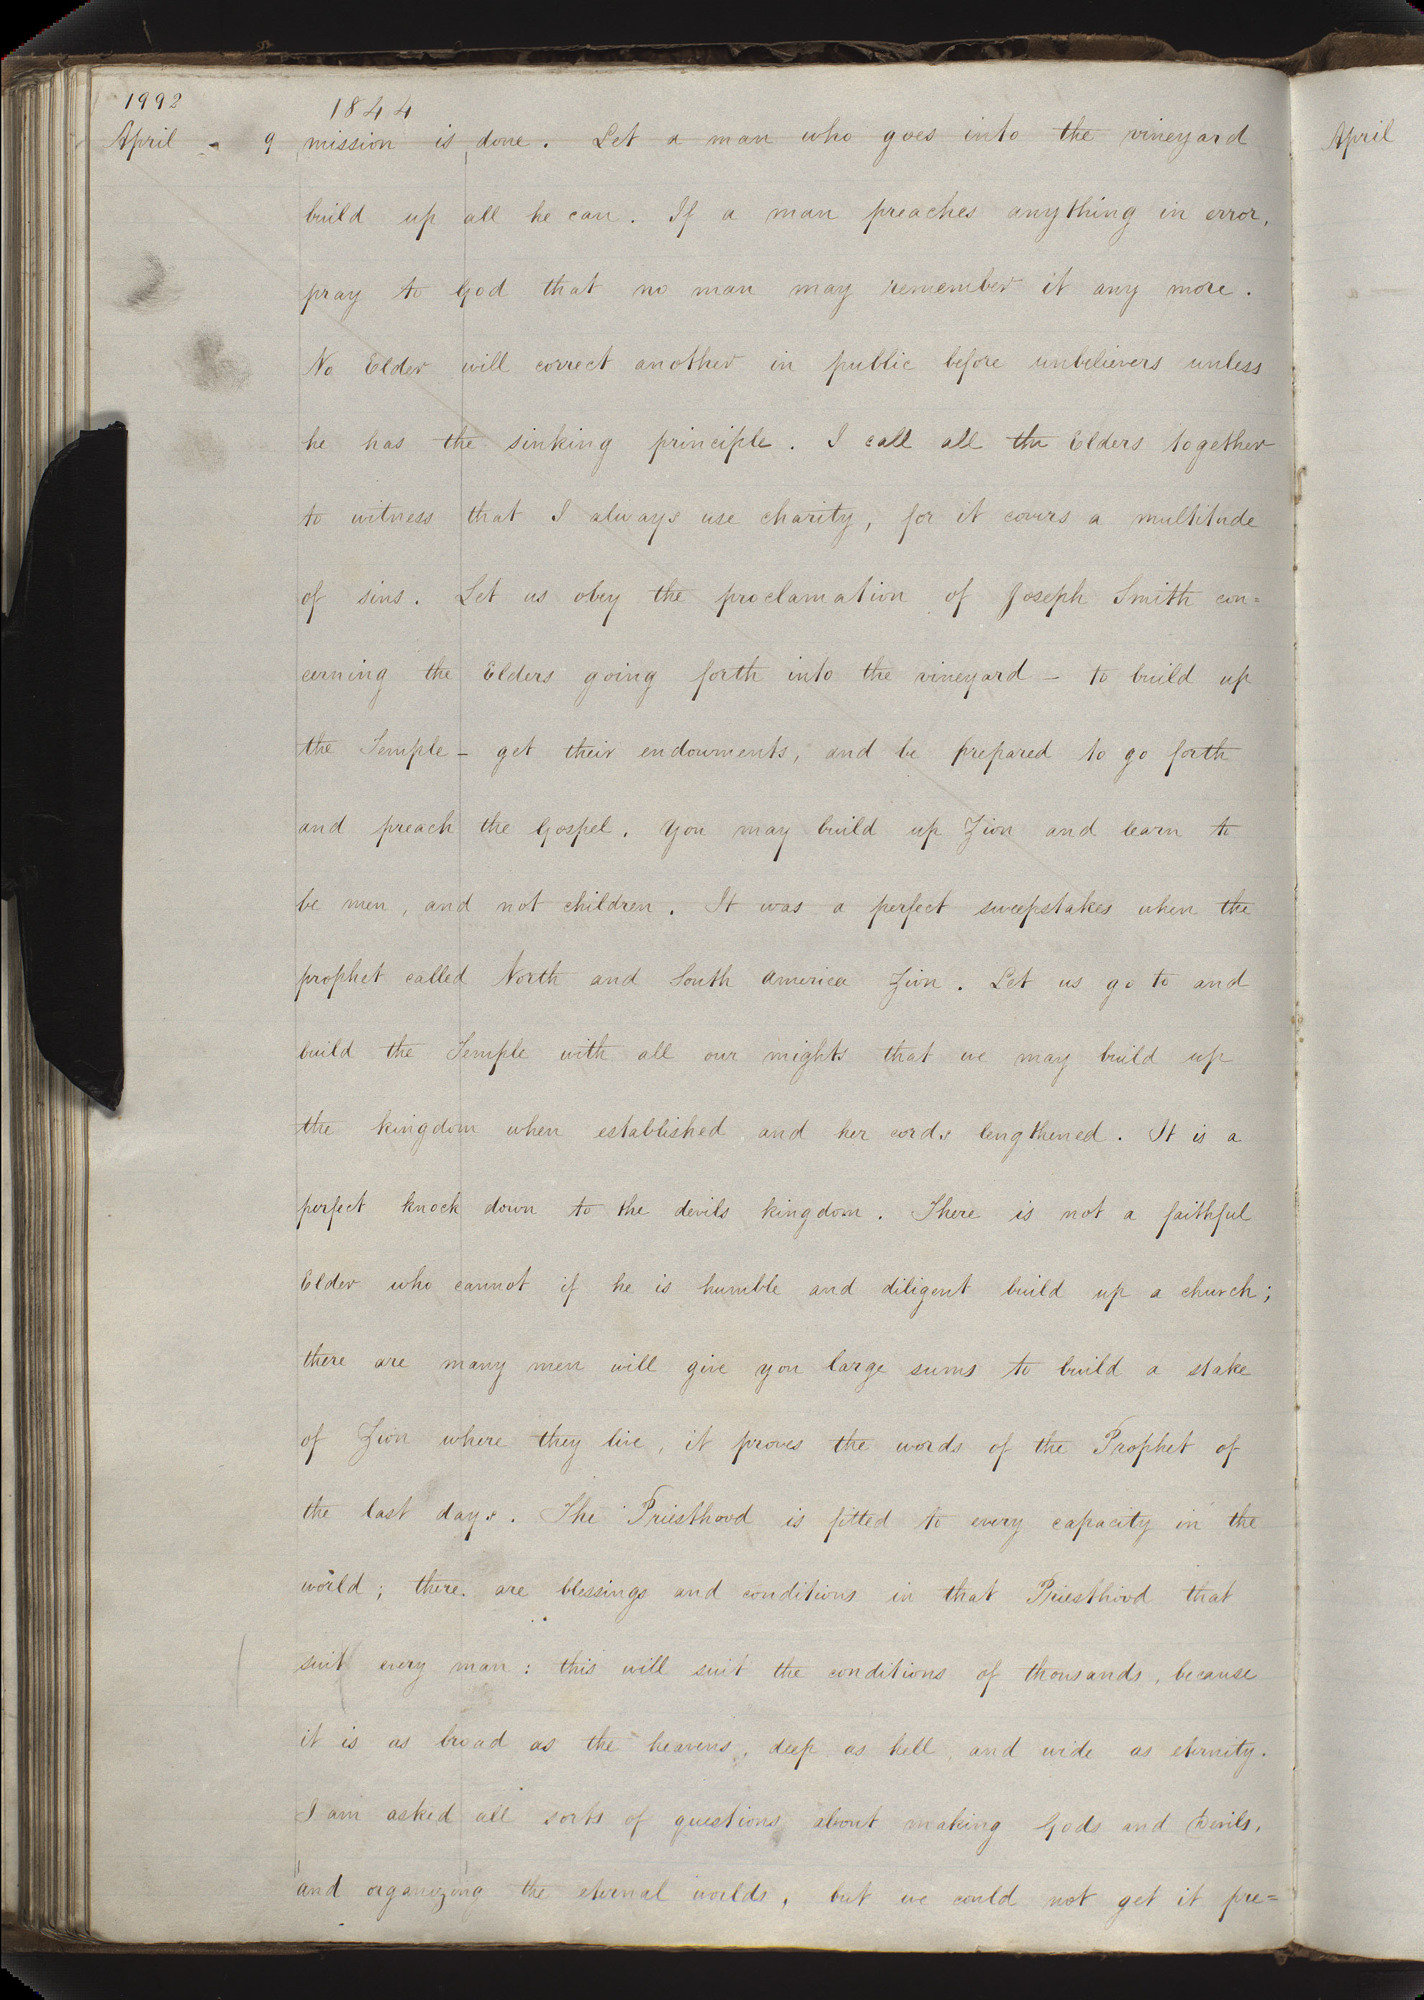 1992
1844
April - 9 mission is done. Let a man who goes into the vineyard
build up all he can. If a man preaches anything in error,
pray to God that no man may remember it any more.
No Elder will correct another in public before unbelievers unless
he has the sinking principle. I call all the Elders together
to witness that I always use charity, for it covers a multitude
of sins. Let us obey the proclamation of Joseph Smith con=
cerning the Elders going forth into the vineyard - to build up
the Temple - get their endowments, and be prepared to go forth
and preach the Gospel. You may build up Zion and learn to
be men, and not children. It was a perfect sweepstakes when the
prophet called North and South America Zion. Let us go to and
build the Temple with all our mights that we may build up
the kingdom when established and her cords lengthened. It is a
perfect knock down to the devils kingdom. There is not a faithful
Elder who cannot if he is humble and diligent build up a church;
there are many men will give you large sums to build a stake
of Zion where they live, it proves the words of the Prophet of
the last days. The Priesthood is fitted to every capacity in the
world; there are blessings and conditions in that Priesthood that
suit every man: this will suit the conditions of thousands, because
it is as broad as the heavens, deep as hell, and wide as eternity.
I am asked all sorts of questions about making Gods and Devils,
and organizing the eternal worlds, but we could not get it pre=
April